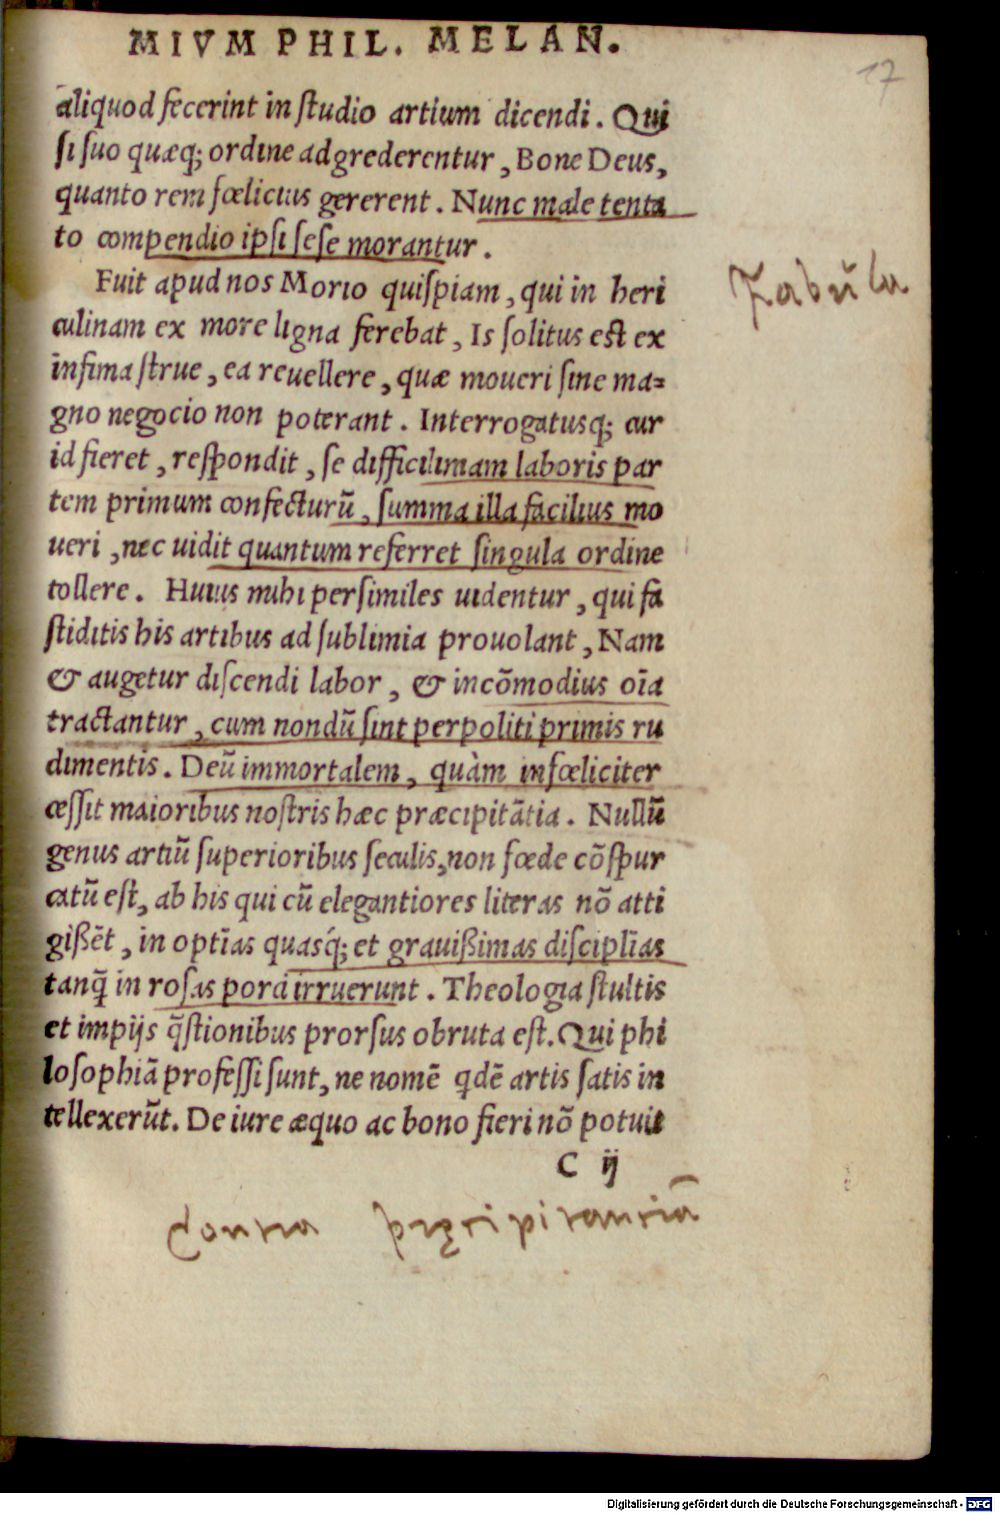 MIVM PHIL. MELAN.
17
aliquod fecerint in ſtudio artium dicendi. Qui
ſi ſuo quæq; ordine adgrederentur, Bone Deus,
quanto rem fœlicius gererent. Nunc male tenta
to compendio ipſi ſeſe morantur.
Fuit apud nos Morio quiſpiam, qui in heri
culinam ex more ligna ferebat, Is ſolitus eſt ex
infima ſtrue, ea reuellere, quæ moueri ſine ma⸗
gno negocio non poterant. Interrogatusq; cur
id fieret, reſpondit, ſe difficilimam laboris par
tem primum confecturū, ſumma illa facilius mo
ueri, nec uidit quantum referret ſingula ordine
tollere. Huius mihi perſimiles uidentur, qui fa
ſtiditis his artibus ad ſublimia prouolant, Nam
& augetur diſcendi labor, & incōmodius oīa
tractantur, cum nondū ſint perpoliti primis ru
dimentis. Deū immortalem, quàm infœliciter
ceſſit maioribus noſtris hæc præcipitātia. Nullū
genus artiū ſuperioribus ſeculis, non fœde cōſpur
catū eſt, ab his qui cū elegantiores literas nō atti
gißēt, in optīas quasq́; et grauißimas diſciplīas
tanq̄ in roſas porci irruerunt. Theologia ſtultis
et impijs q̄ſtionibus prorſus obruta eſt. Qui phi
loſophiā profeſſi ſunt, ne nomē qdē artis ſatis in
tellexerūt. De iure æquo ac bono fieri nō potuit
C ij
Fabula
Contra pręcipitantiā
Digitalisierung gefördert durch die Deutsche Forschungsgemeinschaft - DFG